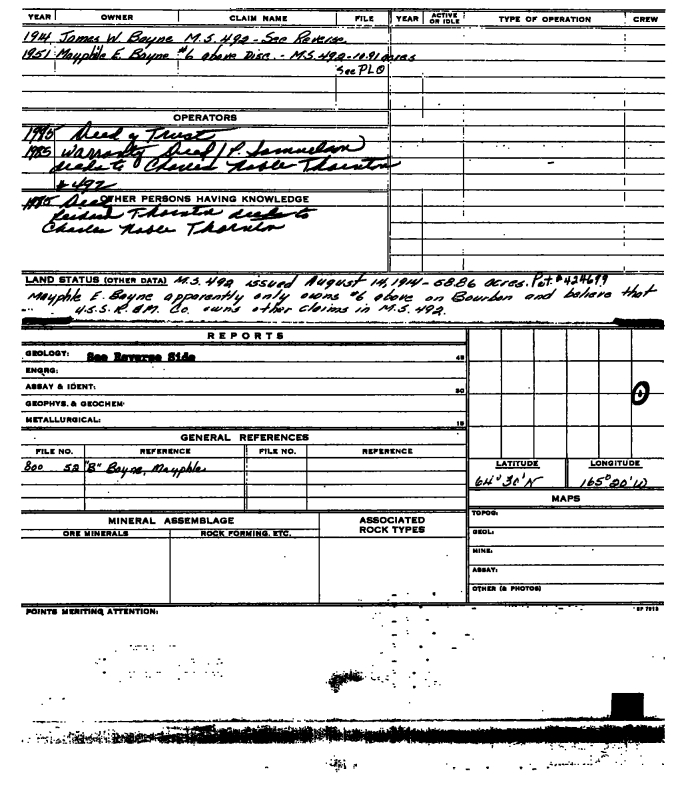 YEAR OWNER CLAIM NAME FILE YEAR ACTIVE OR IDLE TYPE OF OPERATION CREW
1914 James W. Bayne M.S. 492 - See Reverse
1951 Mayphle E. Bayne #6 above Disc. - M.S. 492 - 10.91 acres
See PLO
OPERATORS
Deed of Trust
1985 Warranty Deed / P. Samuelson
deeds to Charles Noble Thornton
#492
OTHER PERSONS HAVING KNOWLEDGE
1985 Deed
Thornton deeds to
Charles Noble Thornton
LAND STATUS (OTHER DATA) M.S. 492 issued August 14, 1914 - 58.86 acres. Pat. # 424699
Mayphle E. Bayne apparently only owns #6 above on Bourbon and believe that
U.S.S.R. & M. Co. owns other claims in M.S. 492.
REPORTS
GEOLOGY: See Reverse Side 45
ENGRG:
ASSAY & IDENT: 30
GEOPHYS. & GEOCHEM:
METALLURGICAL: 15
GENERAL REFERENCES
FILE NO. REFERENCE FILE NO. REFERENCE
800 52 "B" Bayne, Mayphle
LATITUDE LONGITUDE
64° 30' N 165° 20' W
MAPS
MINERAL ASSEMBLAGE ASSOCIATED ROCK TYPES
ORE MINERALS ROCK FORMING, ETC.
TOPOG:
GEOL:
MINE:
ASSAY:
OTHER (& PHOTOS)
POINTS MERITING ATTENTION: